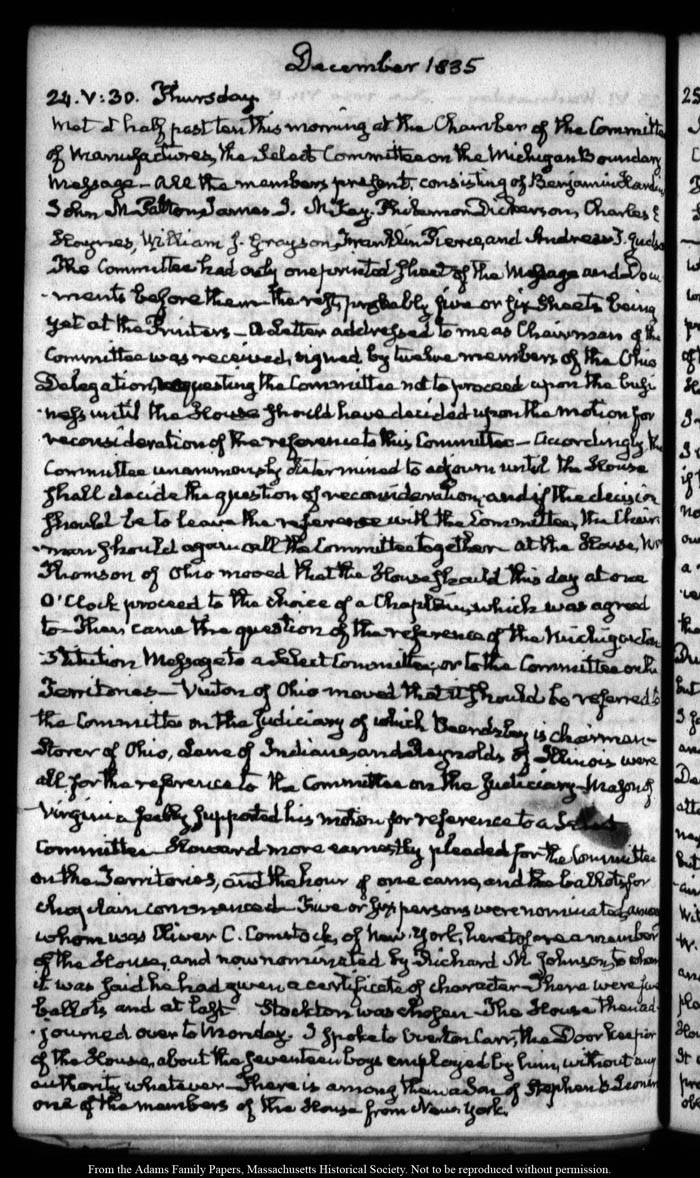 December 1835
24. V:30. Thursday.
Met at half past ten this morning at the Chamber of the Committee
of Manufactures, the Select Committee on the Michigan Boundary
Message — All the members present, consisting of Benjamin Hardin,
John M. Patton, James I. McKay, Philemon Dickerson, Charles E
Haynes, William J. Grayson, Franklin Pierce, and Andrew T. Judson
The Committee had only one printed sheet of the Message and Docu
-ments before them — the rest, probably five or six sheets being
yet at the Printers — A Letter addressed to me as Chairman of the
Committee was received, signed by twelve members of the Ohio
Delegation, requesting the Committee not to proceed upon the busi
-ness until the House should have decided upon the motion for
reconsideration of the reference to this Committee — Accordingly the
Committee unanimously determined to adjourn until the House
shall decide the question of reconsideration; and if the decision
should be to leave the reference with the Committee, the Chair
-man should again call the Committee together. At the House,
Thomson of Ohio moved that the House should this day at one
O'Clock proceed to the choice of a Chaplain, which was agreed
to — Then came the question of the reference of the Michigan Con
-stitution Message to a Select Committee, or to the Committee on the
Territories — Vinton of Ohio moved that it should be referred to
the Committee on the Judiciary of which Beardsley is chairman —
Storer of Ohio, Lane of Indiana, and Reynolds of Illinois were
all for the reference to the Committee on the Judiciary — Mason of
Virginia feebly supported his motion for reference to a Select
Committee — Howard more earnestly pleaded for the Committee
on the Territories, and the hour of one came, and the ballots for
chaplain commenced — Five or six persons were nominated, among
whom was Oliver C. Comstock, of New-York, heretofore a member
of the House, and now nominated by Richard M. Johnson, to whom
it was said he had given a certificate of character — There were five
ballots and at last Stockton was chosen — The House then ad
-journed over to Monday. I spoke to Overton Carr, the Door keeper
of the House, about the seventeen boys employed by him, without any
authority whatever — There is among them a Son of Stephen B. Leonard
one of the members of the House from New-York.
25
From the Adams Family Papers, Massachusetts Historical Society. Not to be reproduced without permission.